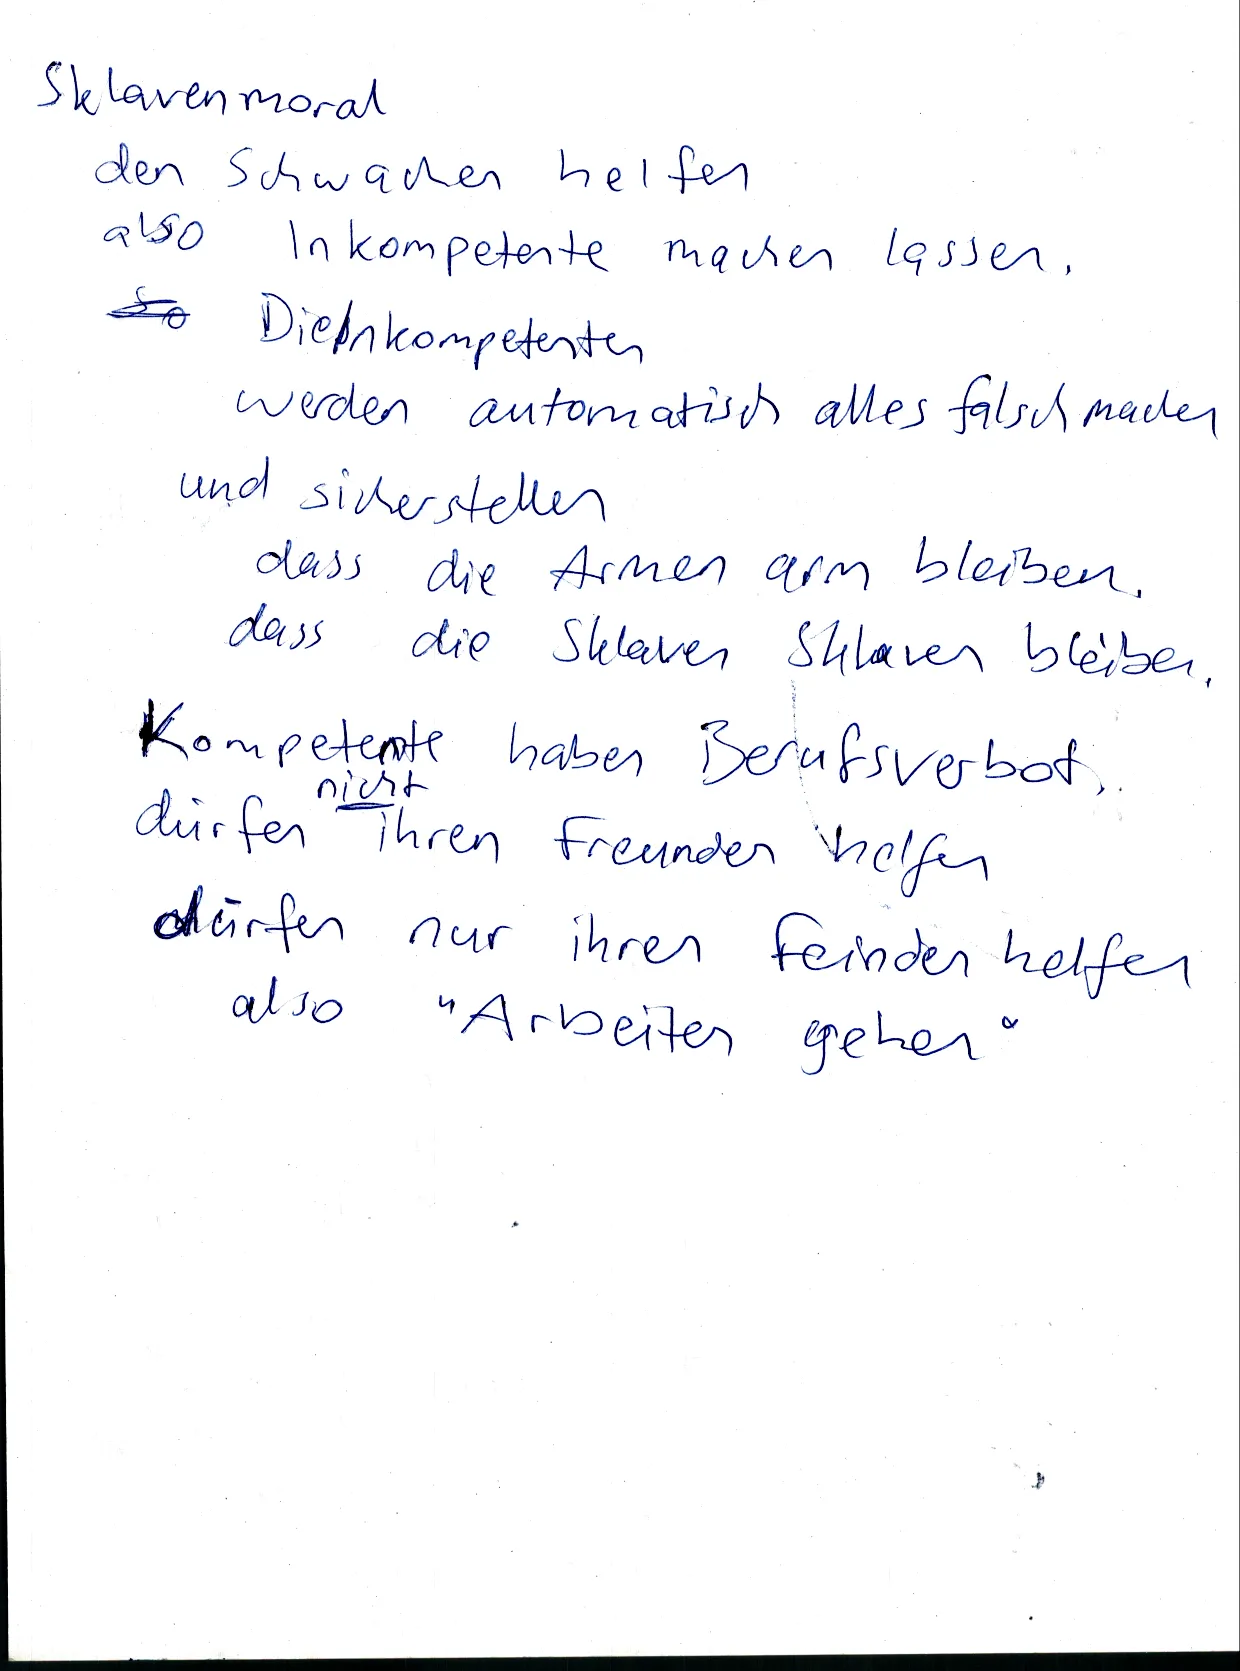 Sklavenmoral
den Schwachen helfen
also Inkompetente machen lassen.
So Die Inkompetenten
werden automatisch alles falsch machen
und sicherstellen
dass die Armen arm bleiben.
dass die Sklaven Sklaven bleiben.
Kompetente haben Berufsverbot.
nicht
dürfen ihren Freunden helfen
dürfen nur ihren Feinden helfen
also "Arbeiten gehen"